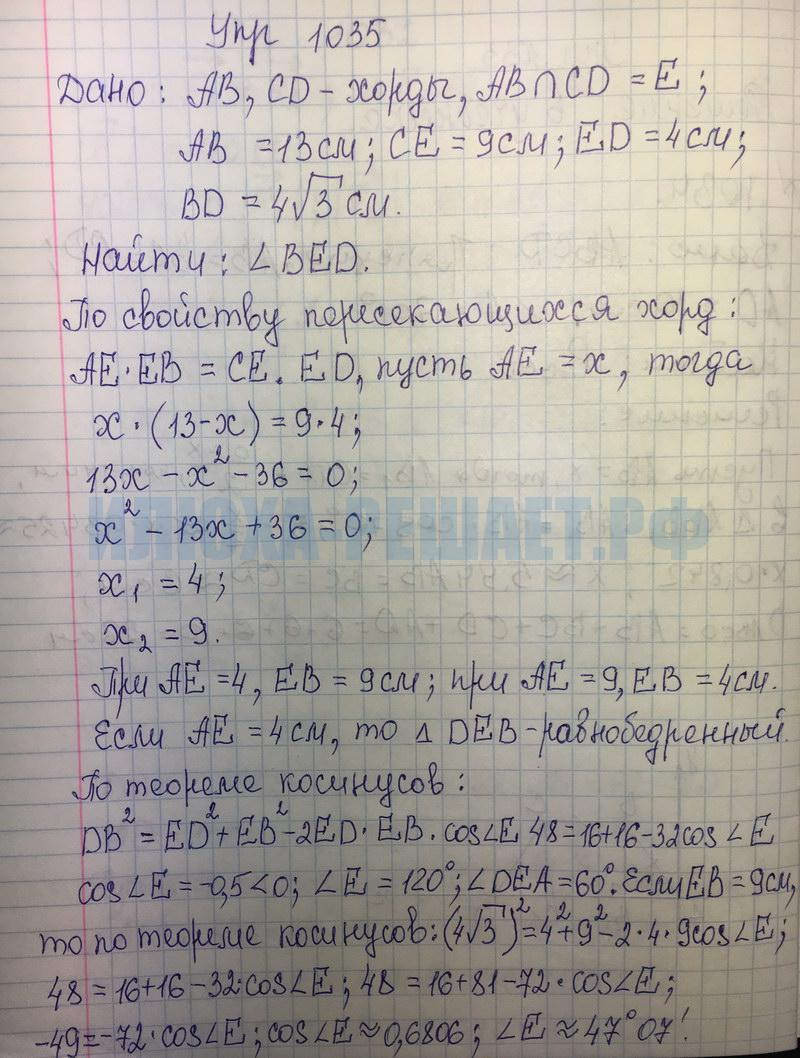 Упр 1035
Дано: AB, CD - хорды, AB∩CD = E;
AB = 13см; CE = 9см; ED = 4см;
BD = 4√3 см.
Найти: ∠BED.
По свойству пересекающихся хорд:
AE·EB = CE. ED, пусть AE = x, тогда
x·(13-x) = 9·4;
13x - x² - 36 = 0;
x² - 13x + 36 = 0;
ИЛЮХА-РЕШАЕТ.РФ
x₁ = 4;
x₂ = 9.
При AE = 4, EB = 9см; при AE = 9, EB = 4см.
Если AE = 4см, то △ DEB - равнобедренный.
По теореме косинусов:
DB² = ED² + EB² - 2ED·EB·cos∠E 48 = 16+16-32cos∠E
cos∠E = -0,5<0; ∠E = 120°; ∠DEA = 60°. Если EB = 9см,
то по теореме косинусов: (4√3)² = 4² + 9² - 2·4·9cos∠E;
48 = 16+16-32·cos∠E; 48 = 16+81-72·cos∠E;
-49 = -72·cos∠E; cos∠E ≈ 0,6806; ∠E ≈ 47°07'.